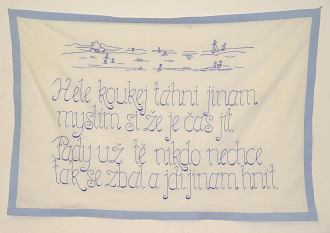 Hele koukej táhni jinam
myslím si že je čas jít.
Tady už tě nikdo nechce
tak se zbal a jdi jinam hnít.